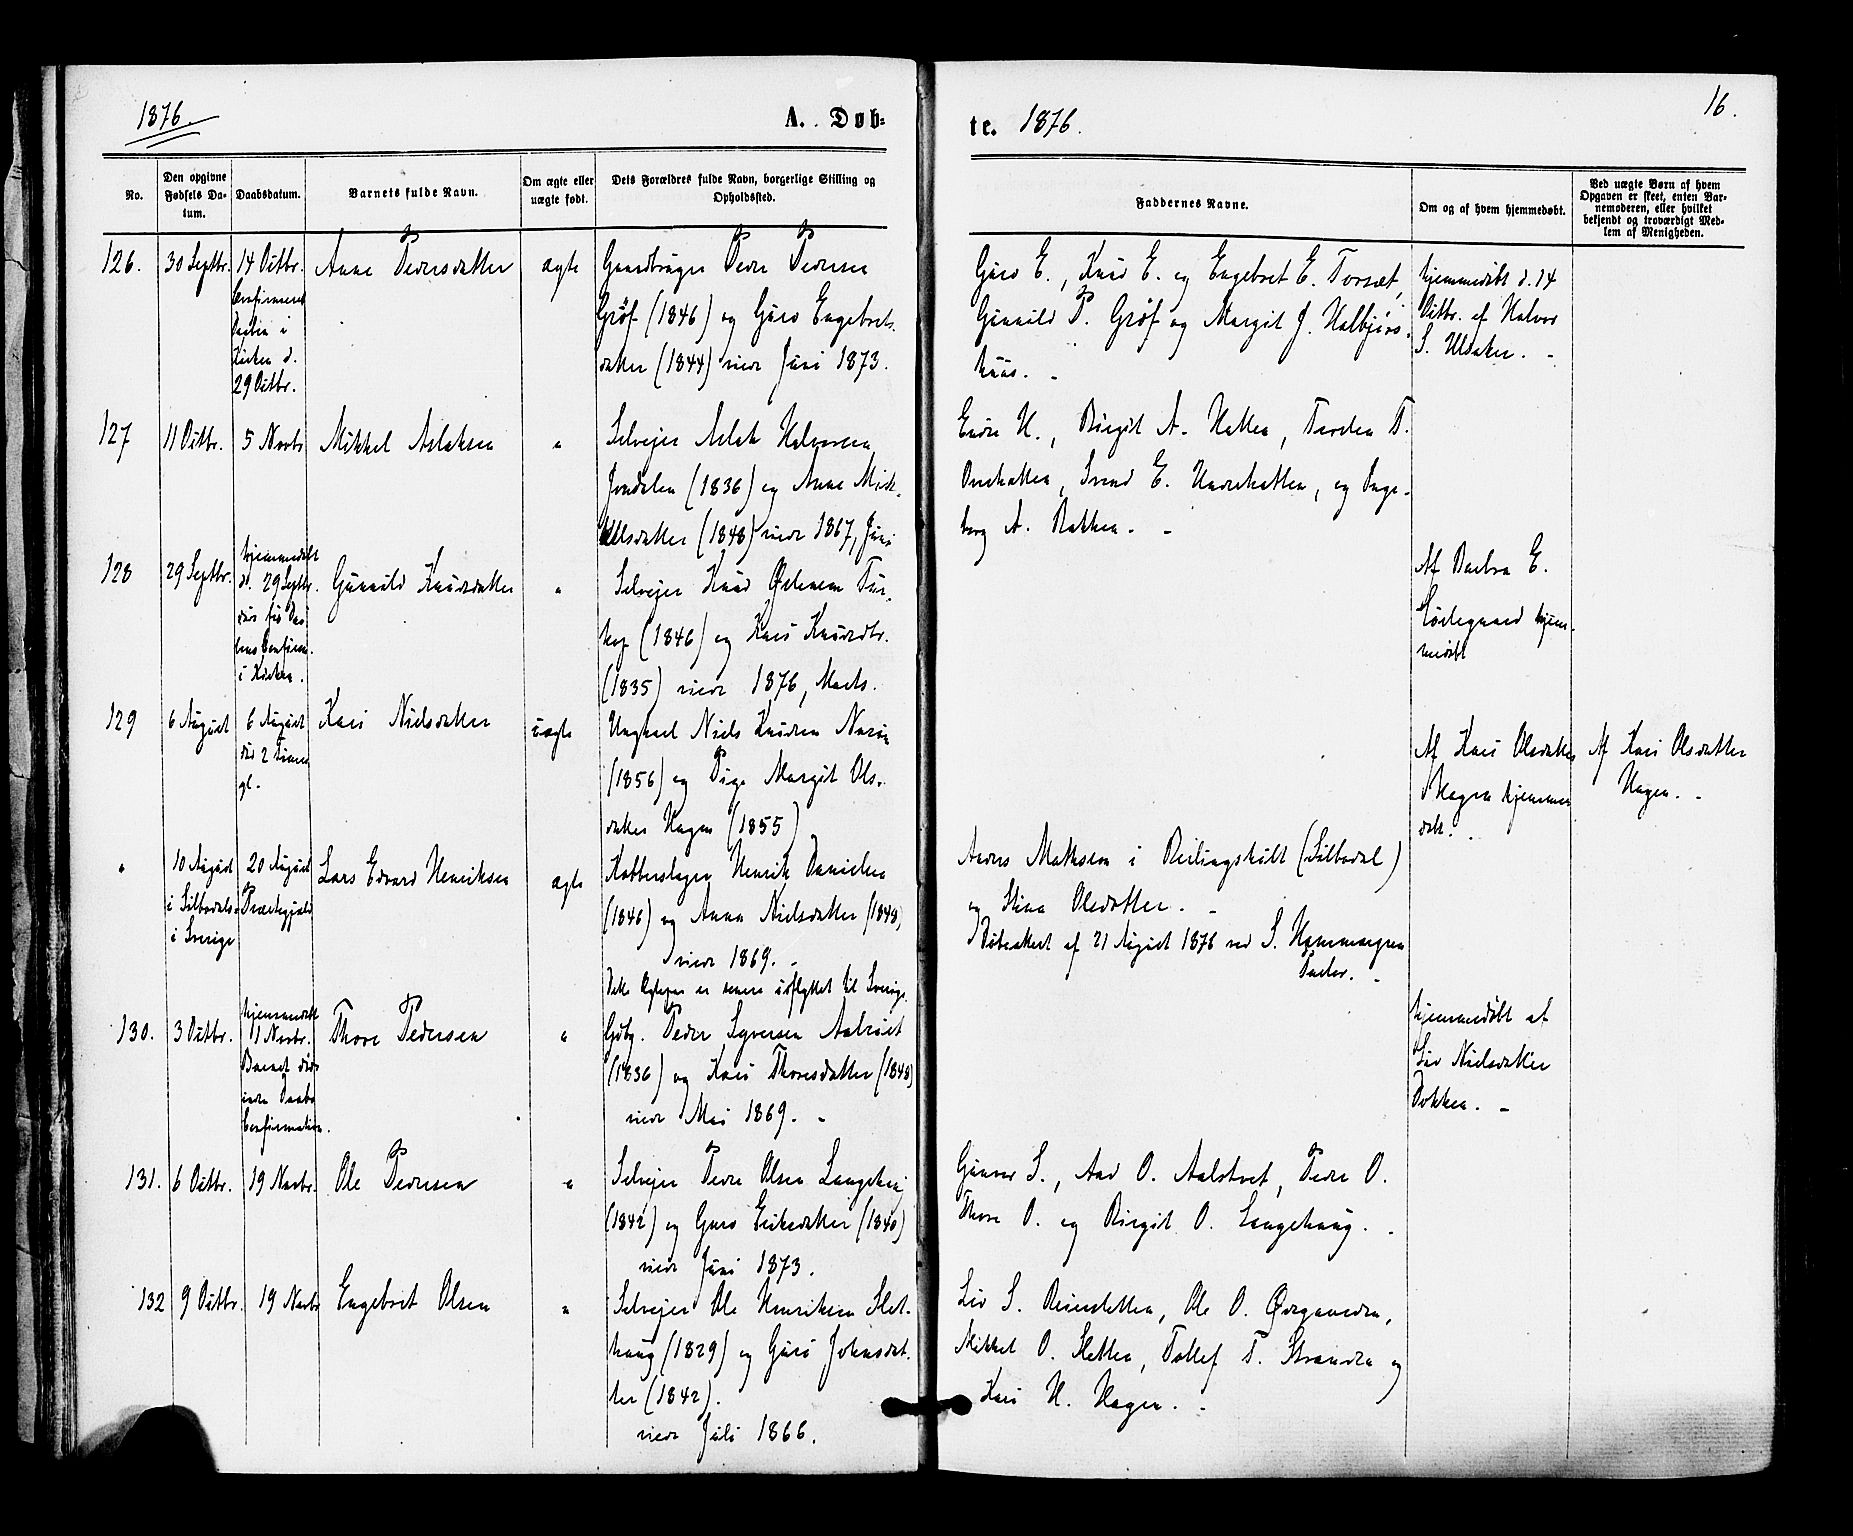 1876.
A. Døb-
te. 1876.
16.
No.
Den opgivne Fødsels Da-
tum.
Daabsdatum.
Barnets fulde Navn.
Om ægte eller
uægte født.
Dets Forældres fulde Navn, borgerlige Stilling og
Opholdssted.
Faddernes Navne.
Om og af hvem hjemmedøbt.
Ved uægte Børn af hvem
Opgaven er skeet, enten Bar-
nemoderen, eller hvilket
bekjendt og troværdigt Med-
lem af Menigheden.
126. 30 Septbr. 14 Octbr. Anne Pedersdatter ægte Gaardbruger Peder Pedersen
Confirmeret
i
Kirken d.
29 Octbr.
Grøf (1846) og Guro Engebrets-
datter (1844) viede Juni 1873.
Guro E., Knud E. og Engebret E. Torsæt,
Gunild P. Grøf og Margit J. Halbjørs-
huus. -
hjemmedøbt d. 14
Octbr. af Halvor
S. Ulsaker. -
127 11 Octbr. 5 Novbr Mikkel Aslaksen " Selvejer Aslak Halvorsen
(1836) og Anne Mik-
kelsdatter (1848) viede 1867, Juni
Endre H., Birgit A. Hatten, T.
Svend E. og Inge-
borg A. Bakken. -
128 29 Septbr. hjemmedøbt
d. 29 Septbr.
død før Daa-
bens Confirm.
i Kirken.
Gunnild Knudsdatter " Selvejer Knud
(1846) og Kari Knudsdtr.
(1835) viede 1876, Marts.
Af Barbra E.
hjem-
medøbt
129 6 August 6 August Kari Nielsdatter uægte Ungkarl Niels Knudsen
død 2 Timer
gl.
(1856) og Pige Margit Ols-
datter Hagen (1855)
Af Kari Olsdatter
Hagen hjemme-
døbt.
Af Kari Olsdatter
Hagen. -
" 10 August 20 August Lars Edvard Henriksen ægte Kobberslager Henrik Danielsen
i Silbodals- Præstegjeld
i Sverige
(1846) og Anna Nielsdatter (1848)
viede 1869. -
Dette Ægtepar er senere udflyttet til Sverige.
Anders Mattsson i (Silbodal)
og Stina Olsdotter. -
Døbeattest af 21 August 1876 ved S. Hammargren
Pastor. -
130. 3 Octbr. hjemmedøbt
11 Novbr.
Barnet død
inden Daabs
Confirmation.
Thore Pedersen " Gdbr. Peder Syversen
(1836) og Kari Thoresdatter (1848)
viede Mai 1869. -
hjemmedøbt af
Liv Nielsdatter
Dokken. -
131. 6 Octbr. 19 Novbr. Ole Pedersen " Selvejer Peder Olsen Langehaug
(1842) og Guro Eriksdatter (1840)
viede Juni 1873.
Gunvor S., O. Aalstvet, Peder O.
Thore O. og Birgit O. Langehaug. -
132 9 Octbr. 19 Novbr Engebret Olsen " Selvejer Ole Henriksen Slet-
haug (1829) og Guri Johnsdat-
ter (1842).
viede Juli 1866.
Liv S. Ole O.
Mikkel O. Sletten, Tollef T. Stranden og
Kari H. Hagen. -